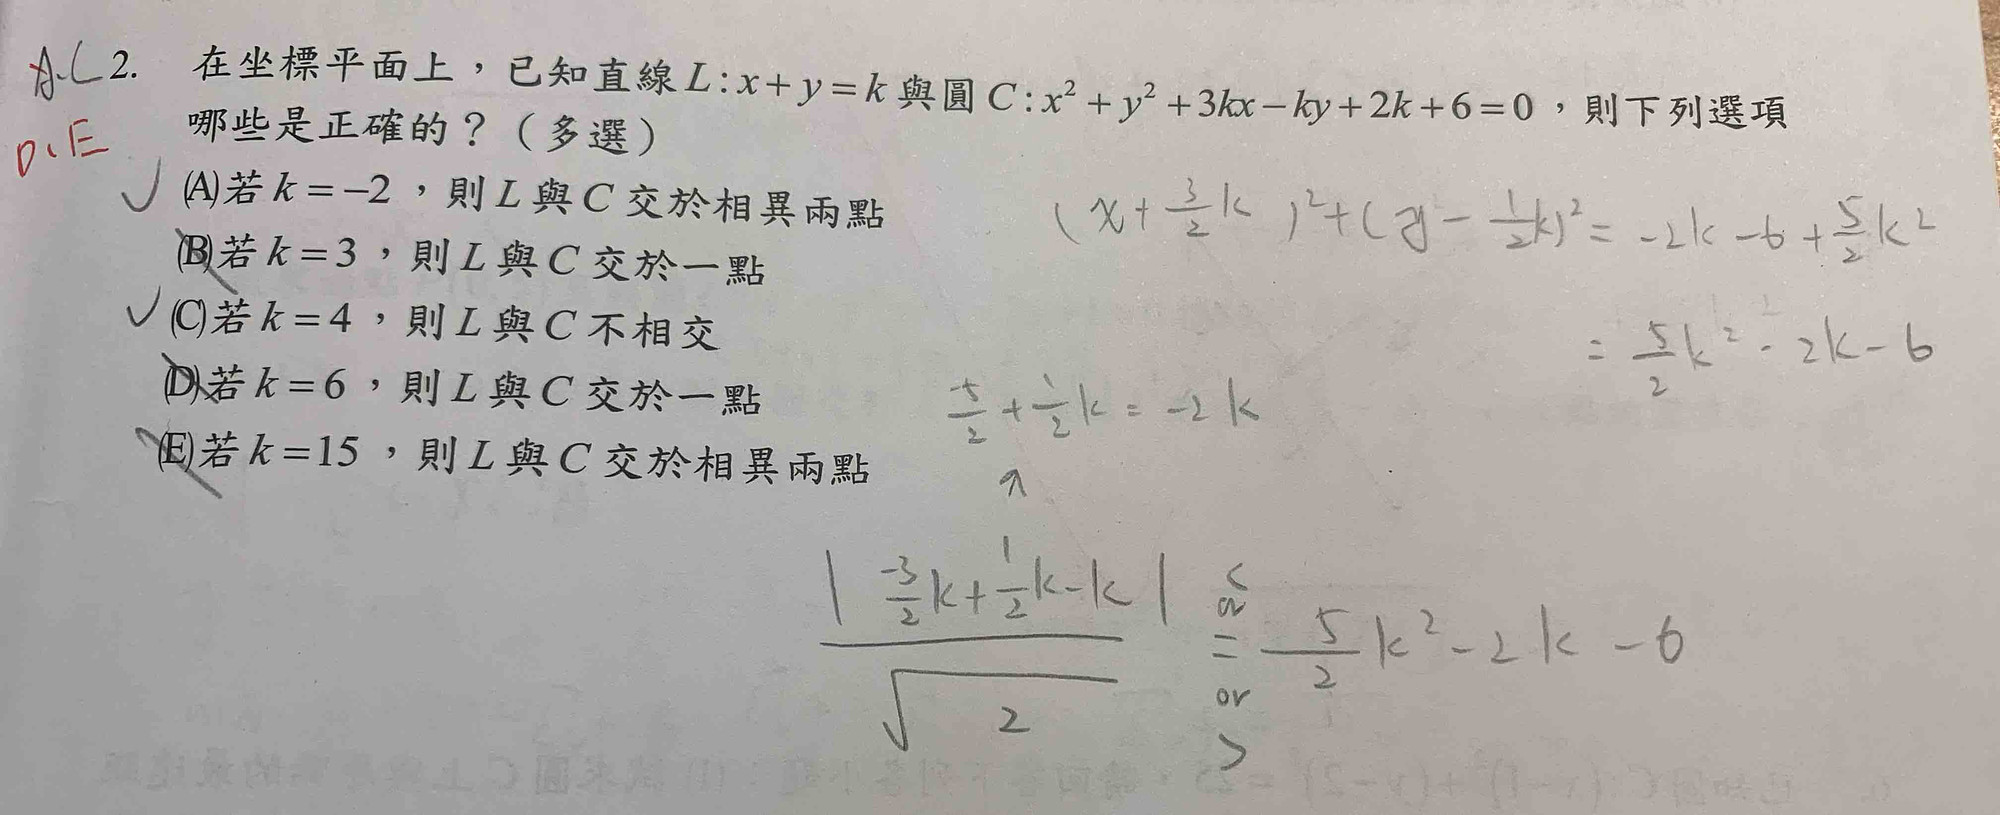 A.C 2. 在坐標平面上，已知直線 L:x+y=k 與圓 C:x²+y²+3kx−ky+2k+6=0，則下列選項
D、E 哪些是正確的？（多選）
(A)若 k=−2，則 L 與 C 交於相異兩點
(B)若 k=3，則 L 與 C 交於一點
(C)若 k=4，則 L 與 C 不相交
(D)若 k=6，則 L 與 C 交於一點
(E)若 k=15，則 L 與 C 交於相異兩點
(x+3/2k)²+(y−1/2k)²=−2k−6+5/2k²
=5/2k²−2k−6
−5/2+1/2k=−2k
|−3/2k+1/2k−k|/√2 < or = or > 5/2k²−2k−6